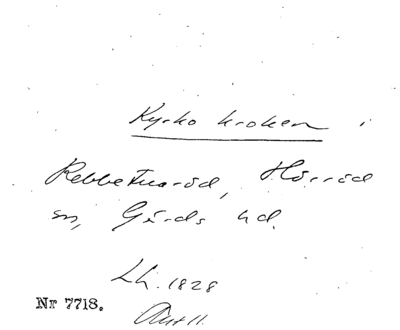 Kyrko kroken i
Rebbetuaröd, Hörröd
sn, Gärds hd.
Lh. 1828
Nr 7718.